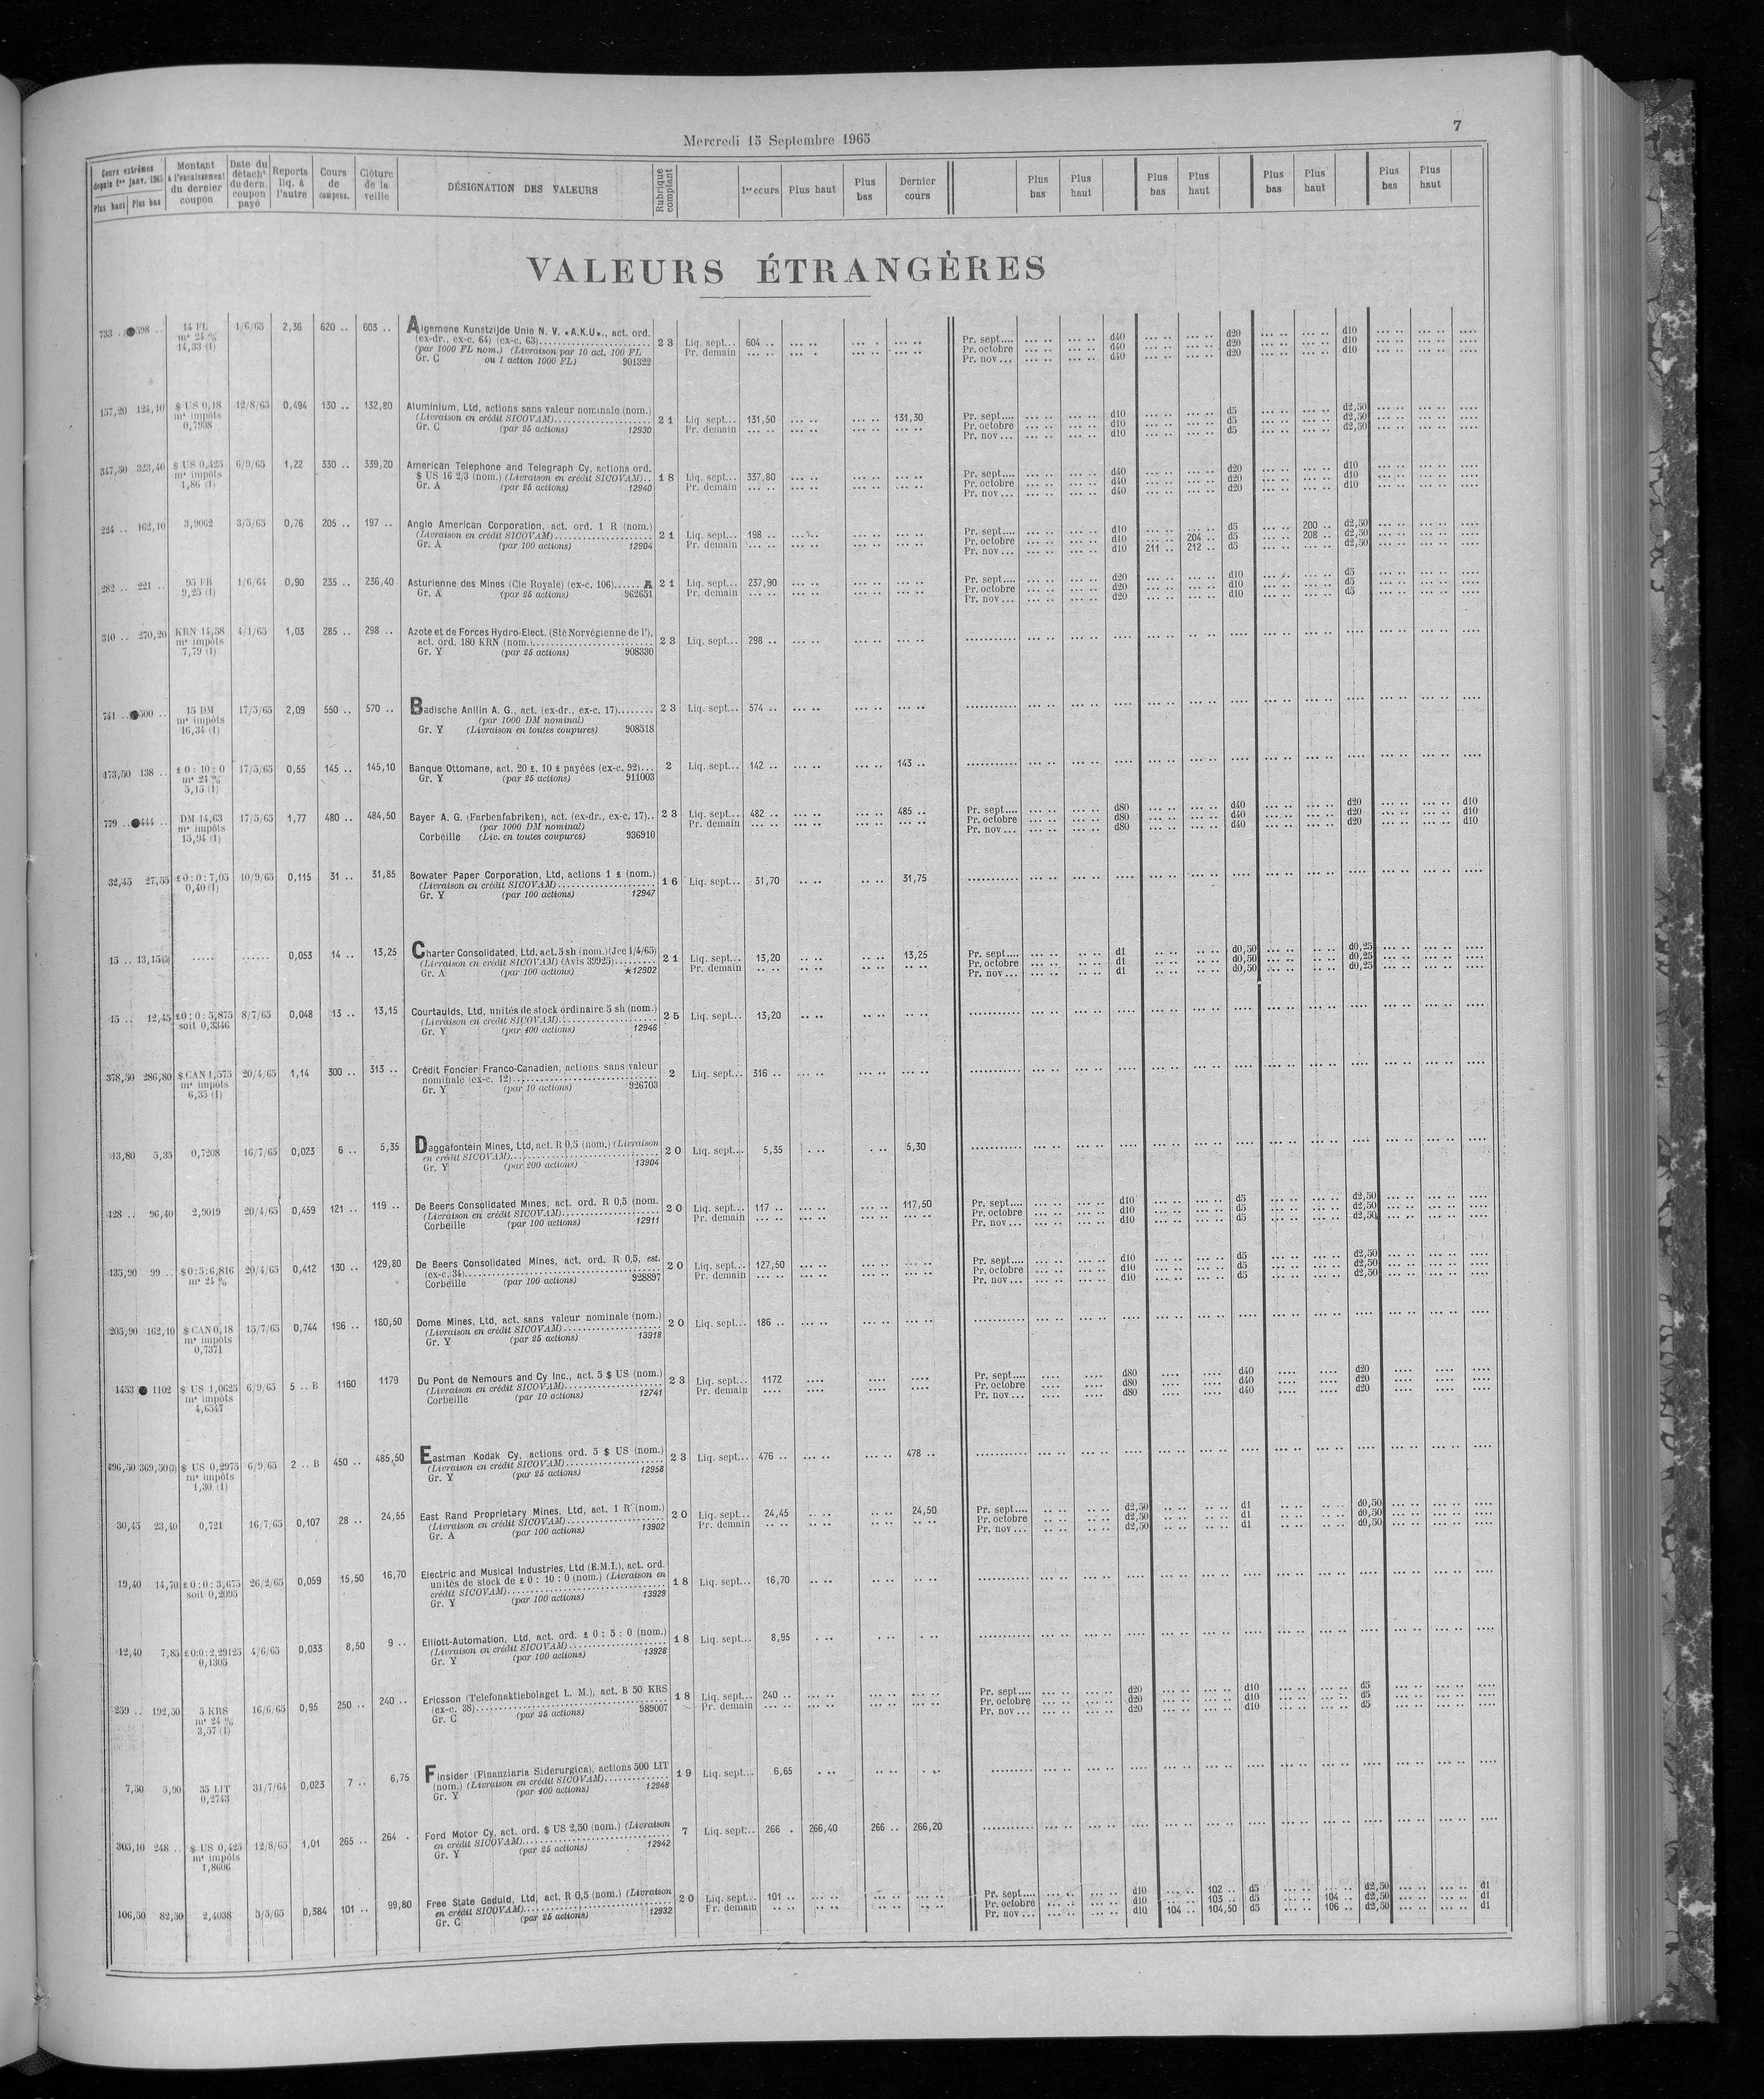 7
Mercredi 15 Septembre 1965
Cours extrêmes depuis 1er janv. 1965 Plus haut Plus bas | Montant à l'encaissement du dernier coupon | Date du détacht du dern. coupon payé | Reports liq. à l'autre | Cours de compens. | Clôture de la veille | DÉSIGNATION DES VALEURS | Rubrique comptant | 1er cours | Plus haut | Plus bas | Dernier cours | Plus bas | Plus haut | Plus bas | Plus haut | Plus bas | Plus haut | Plus bas | Plus haut
VALEURS ÉTRANGÈRES
733 .. 598 .. 14 FL 1/6/65 2,36 620 .. 603 .. Algemene Kunstzijde Unie N. V. «A.K.U»., act. ord.
m* 24 % (ex-dr., ex-c. 64) (ex-c. 63) 23 Liq. sept... 604 .. Pr. sept.... d40 d20 d10
14,33 (1) (par 1000 FL nom.) (Livraison par 10 act. 100 FL Pr. demain Pr. octobre d40 d20 d10
Gr. C ou 1 action 1000 FL) 901322 Pr. nov... d40 d20 d10
157,20 124,10 $ US 0,18 12/8/65 0,494 130 .. 132,80 Aluminium, Ltd, actions sans valeur nominale (nom.)
m* impôts (Livraison en crédit SICOVAM) 21 Liq. sept... 131,50 131,30 Pr. sept.... d10 d5 d2,50
0,7938 Gr. C (par 25 actions) 12930 Pr. demain Pr. octobre d10 d5 d2,50
Pr. nov... d10 d5 d2,50
347,50 323,40 $ US 0,425 6/9/65 1,22 330 .. 339,20 American Telephone and Telegraph Cy, actions ord.
m* impôts $ US 16 2/3 (nom.) (Livraison en crédit SICOVAM).. 18 Liq. sept... 337,80 Pr. sept.... d40 d20 d10
1,86 (1) Gr. A (par 25 actions) 12940 Pr. demain Pr. octobre d40 d20 d10
Pr. nov... d40 d20 d10
224 .. 162,10 3,9062 3/5/65 0,76 205 .. 197 .. Anglo American Corporation, act. ord. 1 R (nom.)
(Livraison en crédit SICOVAM) 21 Liq. sept... 198 .. Pr. sept.... d10 d5 200 .. d2,50
Gr. A (par 100 actions) 12904 Pr. demain Pr. octobre d10 204 .. d5 208 .. d2,50
Pr. nov... d10 211 .. 212 .. d5 d2,50
282 .. 221 .. 95 FB 1/6/64 0,90 235 .. 236,40 Asturienne des Mines (Cie Royale) (ex-c. 106)...... A 21 Liq. sept... 237,90 Pr. sept.... d20 d10 d5
9,25 (1) Gr. A (par 25 actions) 962651 Pr. demain Pr. octobre d20 d10 d5
Pr. nov... d20 d10 d5
310 .. 270,20 KRN 14,58 4/1/65 1,03 285 .. 298 .. Azote et de Forces Hydro-Elect. (Sté Norvégienne de l'),
m* impôts act. ord. 180 KRN (nom.) 23 Liq. sept... 298 ..
7,79 (1) Gr. Y (par 25 actions) 908330
741 .. 500 .. 15 DM 17/5/65 2,09 550 .. 570 .. Badische Anilin A. G., act. (ex-dr., ex-c. 17)........ 23 Liq. sept... 574 ..
m* impôts (par 1000 DM nominal)
16,34 (1) Gr. Y (Livraison en toutes coupures) 908518
173,50 138 .. £ 0 : 10 : 0 17/5/65 0,55 145 .. 145,10 Banque Ottomane, act. 20 £, 10 £ payées (ex-c. 92)... 2 Liq. sept... 142 .. 143 ..
m* 24 % Gr. Y (par 25 actions) 911003
5,15 (1)
779 .. 444 .. DM 14,63 17/5/65 1,77 480 .. 484,50 Bayer A. G. (Farbenfabriken), act. (ex-dr., ex-c. 17).. 23 Liq. sept... 482 .. 485 .. Pr. sept.... d80 d40 d20 d10
m* impôts (par 1000 DM nominal) Pr. demain Pr. octobre d80 d40 d20 d10
15,94 (1) Corbeille (Liv. en toutes coupures) 936910 Pr. nov... d80 d40 d20 d10
32,45 27,55 £ 0 : 0 : 7,05 10/9/65 0,115 31 .. 31,85 Bowater Paper Corporation, Ltd, actions 1 £ (nom.)
0,40 (1) (Livraison en crédit SICOVAM) 16 Liq. sept... 31,70 31,75
Gr. Y (par 100 actions) 12947
15 .. 13,15(3) ..... ...... 0,053 14 .. 13,25 Charter Consolidated, Ltd, act. 5 sh (nom.) (Jce 1/4/65)
(Livraison en crédit SICOVAM) (Avis 39925) 21 Liq. sept... 13,20 13,25 Pr. sept.... d1 d0,50 d0,25
Gr. A (par 100 actions) ★12902 Pr. demain Pr. octobre d1 d0,50 d0,25
Pr. nov... d1 d0,50 d0,25
15 .. 12,45 £ 0 : 0 : 5,875 8/7/65 0,048 13 .. 13,15 Courtaulds, Ltd, unités de stock ordinaire 5 sh (nom.)
soit 0,3346 (Livraison en crédit SICOVAM) 25 Liq. sept... 13,20
Gr. Y (par 400 actions) 12946
378,50 286,80 $ CAN 1,575 20/4/65 1,14 300 .. 313 .. Crédit Foncier Franco-Canadien, actions sans valeur
m* impôts nominale (ex-c. 12) 2 Liq. sept... 316 ..
6,35 (1) Gr. Y (par 10 actions) 926703
13,80 5,35 0,7208 16/7/65 0,023 6 .. 5,35 Daggafontein Mines, Ltd, act. R 0,5 (nom.) (Livraison
en crédit SICOVAM) 20 Liq. sept... 5,35 5,30
Gr. Y (par 200 actions) 13904
128 .. 96,40 2,9019 20/4/65 0,459 121 .. 119 .. De Beers Consolidated Mines, act. ord. R 0,5 (nom.
(Livraison en crédit SICOVAM) 20 Liq. sept... 117 .. 117,50 Pr. sept.... d10 d5 d2,50
Corbeille (par 100 actions) 12911 Pr. demain Pr. octobre d10 d5 d2,50
Pr. nov... d10 d5 d2,50
135,90 99 .. $ 0 : 5 : 6,816 20/4/65 0,412 130 .. 129,80 De Beers Consolidated Mines, act. ord. R 0,5, est.
m* 24 % (ex-c. 34) 20 Liq. sept... 127,50 Pr. sept.... d10 d5 d2,50
Corbeille (par 100 actions) 928897 Pr. demain Pr. octobre d10 d5 d2,50
Pr. nov... d10 d5 d2,50
205,90 162,10 $ CAN 0,18 15/7/65 0,744 196 .. 180,50 Dome Mines, Ltd, act. sans valeur nominale (nom.)
m* impôts (Livraison en crédit SICOVAM) 20 Liq. sept... 186 ..
0,7371 Gr. Y (par 25 actions) 13918
1453 1102 $ US 1,0625 6/9/65 5 .. B 1160 1179 Du Pont de Nemours and Cy Inc., act. 5 $ US (nom.)
m* impôts (Livraison en crédit SICOVAM) 23 Liq. sept... 1172 Pr. sept.... d80 d40 d20
4,6547 Corbeille (par 10 actions) 12741 Pr. demain Pr. octobre d80 d40 d20
Pr. nov... d80 d40 d20
496,50 369,50(3) $ US 0,2975 6/9/65 2 .. B 450 .. 485,50 Eastman Kodak Cy, actions ord. 5 $ US (nom.)
m* impôts (Livraison en crédit SICOVAM) 23 Liq. sept... 476 .. 478 ..
1,30 (1) Gr. Y (par 25 actions) 12958
30,45 23,40 0,721 16/7/65 0,107 28 .. 24,55 East Rand Proprietary Mines, Ltd, act. 1 R (nom.)
(Livraison en crédit SICOVAM) 20 Liq. sept... 24,45 24,50 Pr. sept.... d2,50 d1 d0,50
Gr. A (par 100 actions) 13902 Pr. demain Pr. octobre d2,50 d1 d0,50
Pr. nov... d2,50 d1 d0,50
19,40 14,70 £ 0 : 0 : 3,675 26/2/65 0,059 15,50 16,70 Electric and Musical Industries, Ltd (E.M.I.), act. ord.
soit 0,2095 unités de stock de £ 0 : 10 : 0 (nom.) (Livraison en
crédit SICOVAM) 18 Liq. sept... 16,70
Gr. Y (par 100 actions) 13929
12,40 7,85 £ 0:0:2,29125 4/6/65 0,033 8,50 9 .. Elliott-Automation, Ltd, act. ord. £ 0 : 5 : 0 (nom.)
0,1305 (Livraison en crédit SICOVAM) 18 Liq. sept... 8,95
Gr. Y (par 100 actions) 13928
259 .. 192,50 5 KRS 16/6/65 0,95 250 .. 240 .. Ericsson (Telefonaktiebolaget L. M.), act. B 50 KRS
m* 24 % (ex-c. 38) 18 Liq. sept... 240 .. Pr. sept.... d20 d10 d5
3,57 (1) Gr. C (par 25 actions) 989007 Pr. demain Pr. octobre d20 d10 d5
Pr. nov... d20 d10 d5
7,50 5,90 35 LIT 31/7/64 0,023 7 .. 6,75 Finsider (Finanziaria Siderurgica), actions 500 LIT
0,2743 (nom.) (Livraison en crédit SICOVAM) 19 Liq. sept... 6,65
Gr. Y (par 400 actions) 12948
305,10 248 .. $ US 0,425 12/8/65 1,01 265 .. 264 . Ford Motor Cy, act. ord. $ US 2,50 (nom.) (Livraison
m* impôts en crédit SICOVAM) 7 Liq. sept... 266 . 266,40 266 .. 266,20
1,8606 Gr. Y (par 25 actions) 12942
106,50 82,50 2,4038 3/5/65 0,384 101 .. 99,80 Free State Geduld, Ltd, act. R 0,5 (nom.) (Livraison
en crédit SICOVAM) 20 Liq. sept... 101 .. Pr. sept.... d10 102 .. d5 d2,50 d1
Gr. C (par 25 actions) 12932 Pr. demain Pr. octobre d10 103 .. d5 104 .. d2,50 d1
Pr. nov... d10 104 .. 104,50 d5 106 .. d2,50 d1